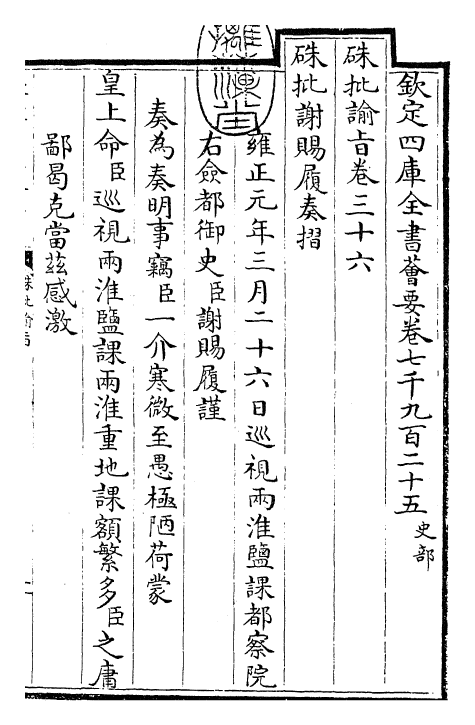 欽定四庫全書薈要卷七千九百二十五史部
硃批諭旨卷三十六
硃批謝賜履奏摺
雍正元年三月二十六日巡視兩淮鹽課都察院
右僉都御史臣謝賜履謹
奏為奏明事竊臣一介寒微至愚極陋荷蒙
皇上命臣巡視兩淮鹽課兩淮重地課額繁多臣之庸
鄙曷克當茲感激